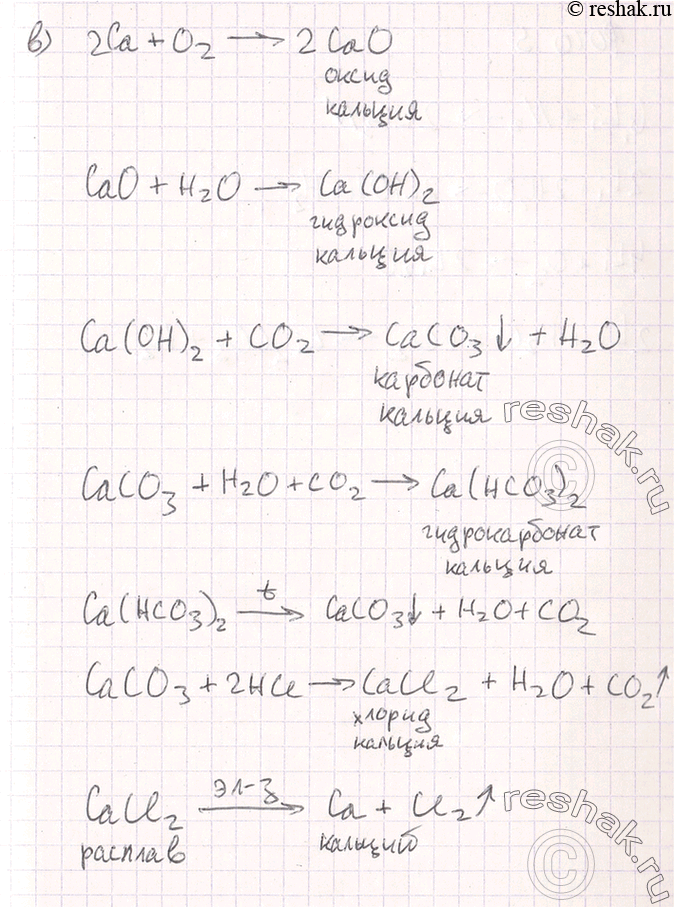 © reshak.ru
в) 2Ca + O₂ → 2CaO
оксид
кальция
CaO + H₂O → Ca(OH)₂
гидроксид
кальция
Ca(OH)₂ + CO₂ → CaCO₃↓ + H₂O
карбонат
кальция
reshak.ru
©
CaCO₃ + H₂O + CO₂ → Ca(HCO₃)₂
гидрокарбонат
кальция
t
Ca(HCO₃)₂ → CaCO₃↓ + H₂O + CO₂
CaCO₃ + 2HCl → CaCl₂ + H₂O + CO₂↑
хлорид
кальция
эл-з
CaCl₂ → Ca + Cl₂↑
расплав кальций
reshak.ru
©